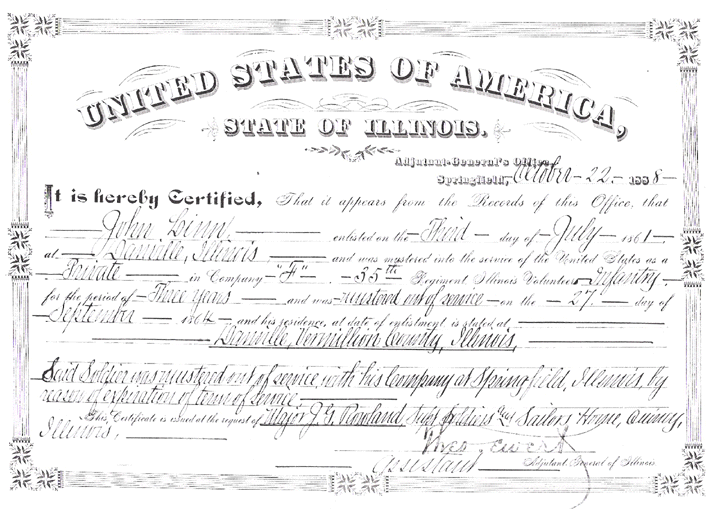 UNITED STATES OF AMERICA,
STATE OF ILLINOIS.
Adjutant-General's Office,
Springfield, October 22. 1888
It is hereby Certified, That it appears from the Records of this Office, that
John Linn enlisted on the Third day of July 1861.
at Danville, Illinois and was mustered into the service of the United States as a
Private in Company "F" 35th Regiment Illinois Volunteer Infantry
for the period of Three Years and was mustered out of service on the 27. day of
September 1864 and his residence at date of enlistment is stated at
Danville, Vermillion County, Illinois,
Said Soldier was mustered out of service with his Company at Springfield, Illinois, by
reason of expiration of term of service.
This Certificate is issued at the request of Major J. G. Rowland, Soldiers and Sailors Home, Quincy,
Illinois,
Assistant Adjutant General of Illinois